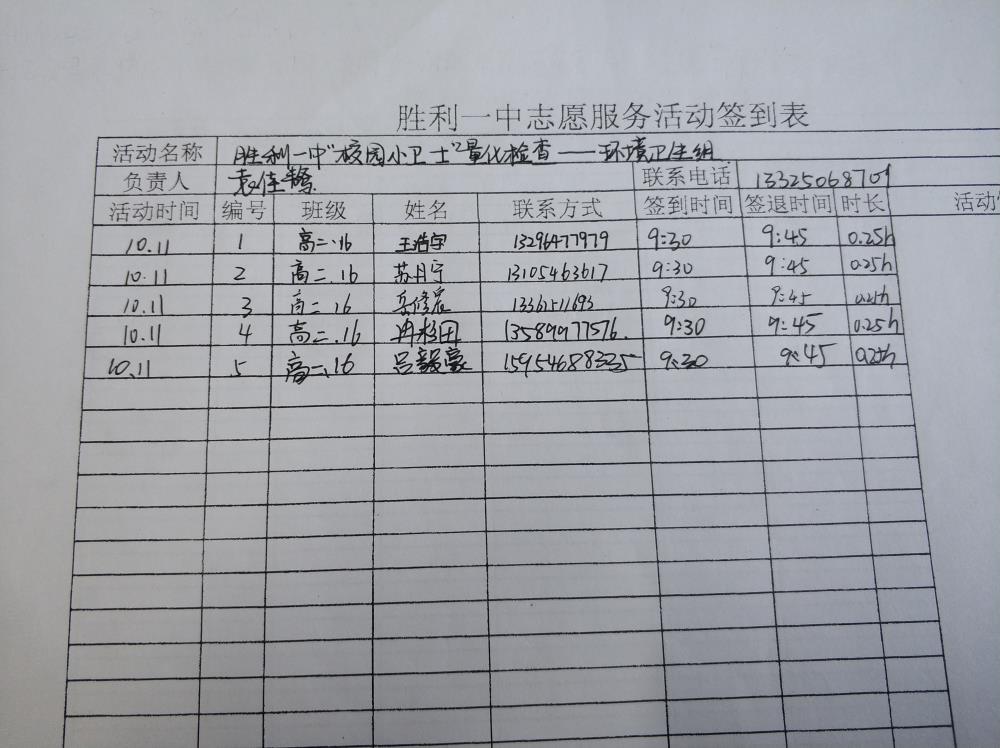 胜利一中志愿服务活动签到表
活动名称 胜利一中"校园小卫士"量化检查——环境卫生组
负责人 袁佳 联系电话 13325068701
活动时间 编号 班级 姓名 联系方式 签到时间 签退时间 时长 活动
10.11 1 高二.16 王浩宇 13296477979 9:30 9:45 0.25h
10.11 2 高二.16 苏月宁 13105463617 9:30 9:45 0.25h
10.11 3 高二.16 岳修辰 13361511693 9:30 9:45 0.25h
10.11 4 高二.16 13589977576. 9:30 9:45 0.25h
10.11 5 高二.16 吕毅豪 15954688325 9:30 9:45 0.25h